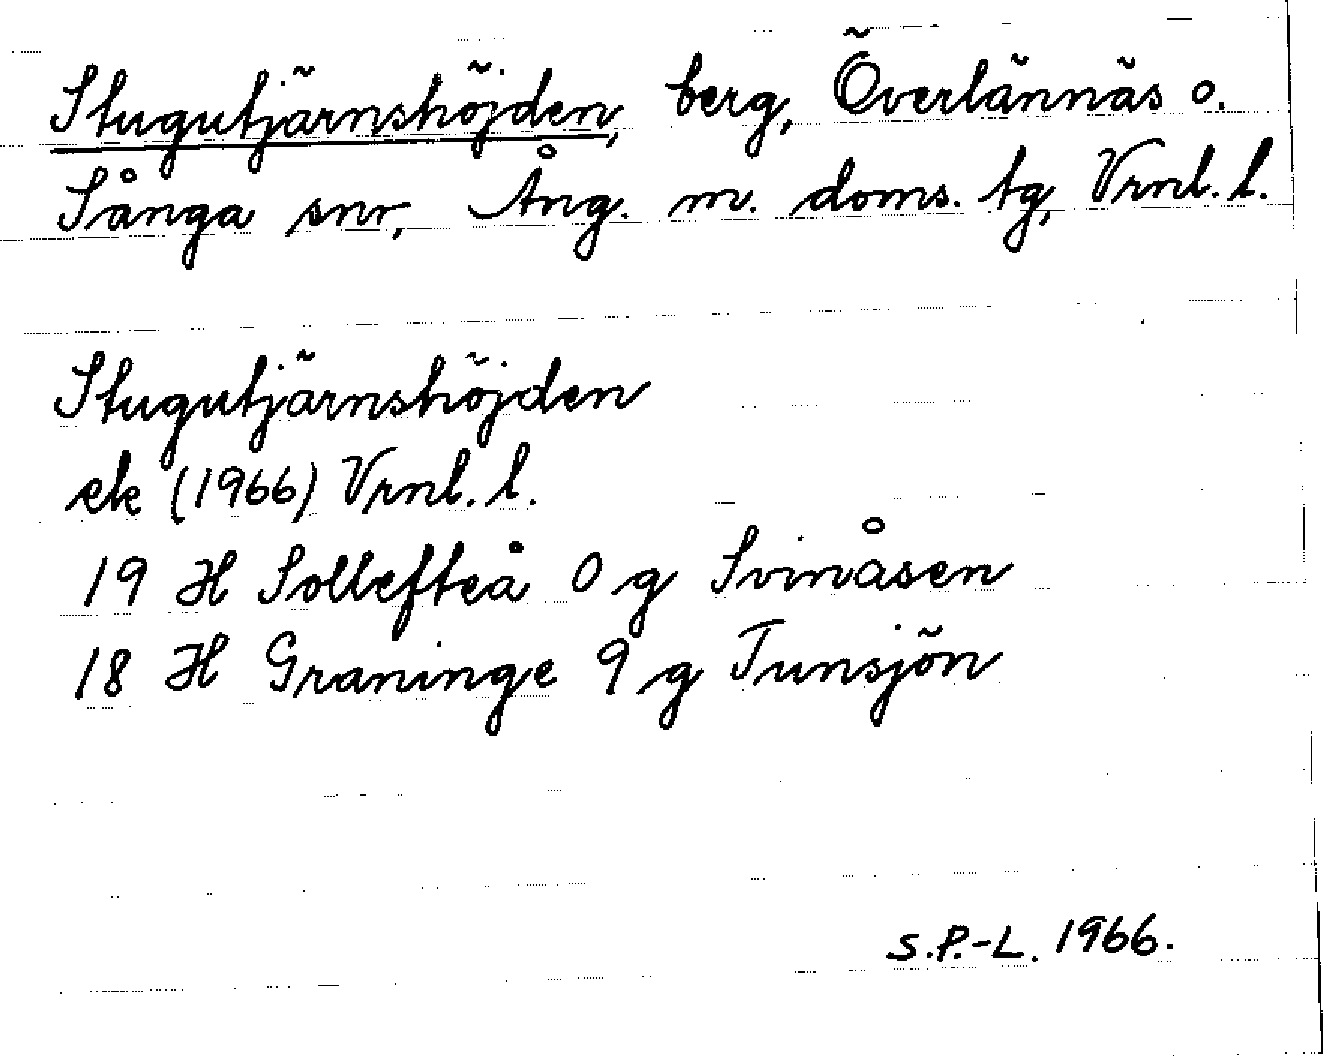 Stugutjärnshöjden, berg, Överlännäs o.
Sånga snr, Ång. m. doms. tg, Vrnl. l.
Stugutjärnshöjden
ek (1966) Vrnl. l.
19 H Sollefteå 0 g Svinåsen
18 H Graninge 9 g Tunsjön
S.P.-L. 1966.